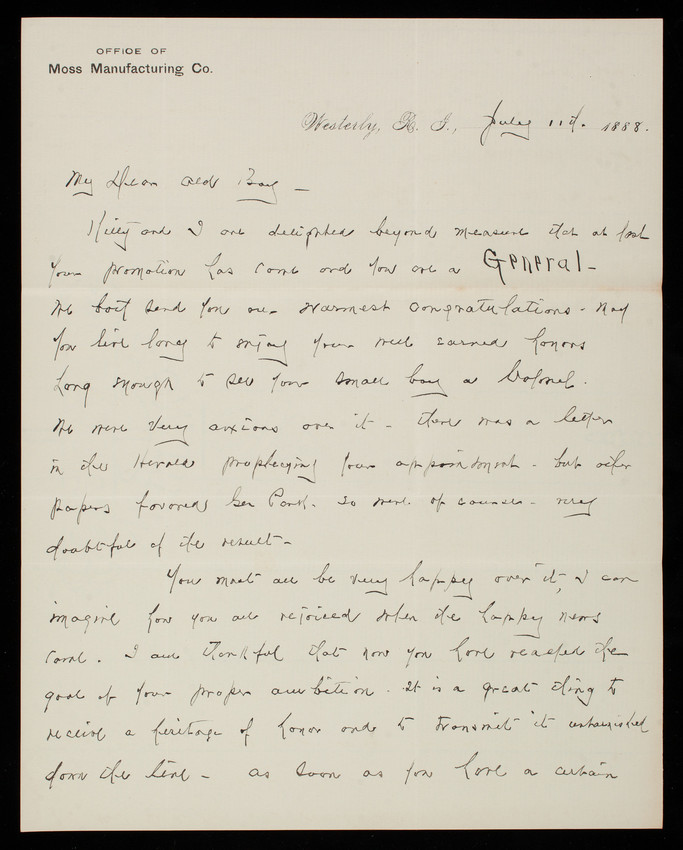 OFFICE OF
Moss Manufacturing Co.
Westerly, R. I., July 11th. 1888.
My Dear Old Boy –
Kitty and I are delighted beyond measure that at last
your promotion has come and you are a General –
We both send you our warmest congratulations – May
you live long to enjoy your well earned honors
long enough to see your small boy a Colonel.
We were very anxious over it – there was a letter
in the Herald prophecying your appointment – but other
papers favored Gen Park. So were of course – very
doubtful of the result –
You must all be very happy over it, I can
imagine how you all rejoiced when the happy news
came. I am thankful that now you have reached the
goal of your proper ambition. It is a great thing to
receive a heritage of honor and to transmit it untarnished
down the line – as soon as you have a certain